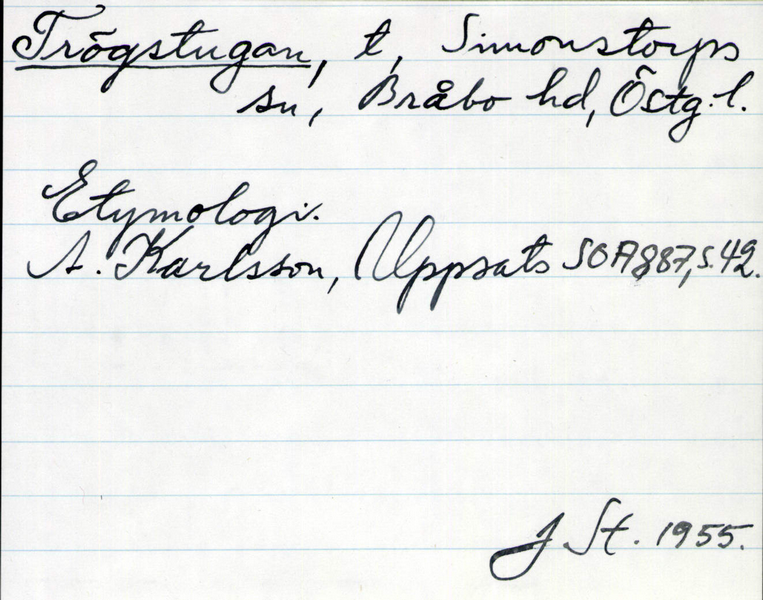 Trögstugan, t, Simonstorps
sn, Bråbo hd, Östg.l.
Etymologi.
A. Karlsson, Uppsats SOA 887, s. 42.
J St. 1955.